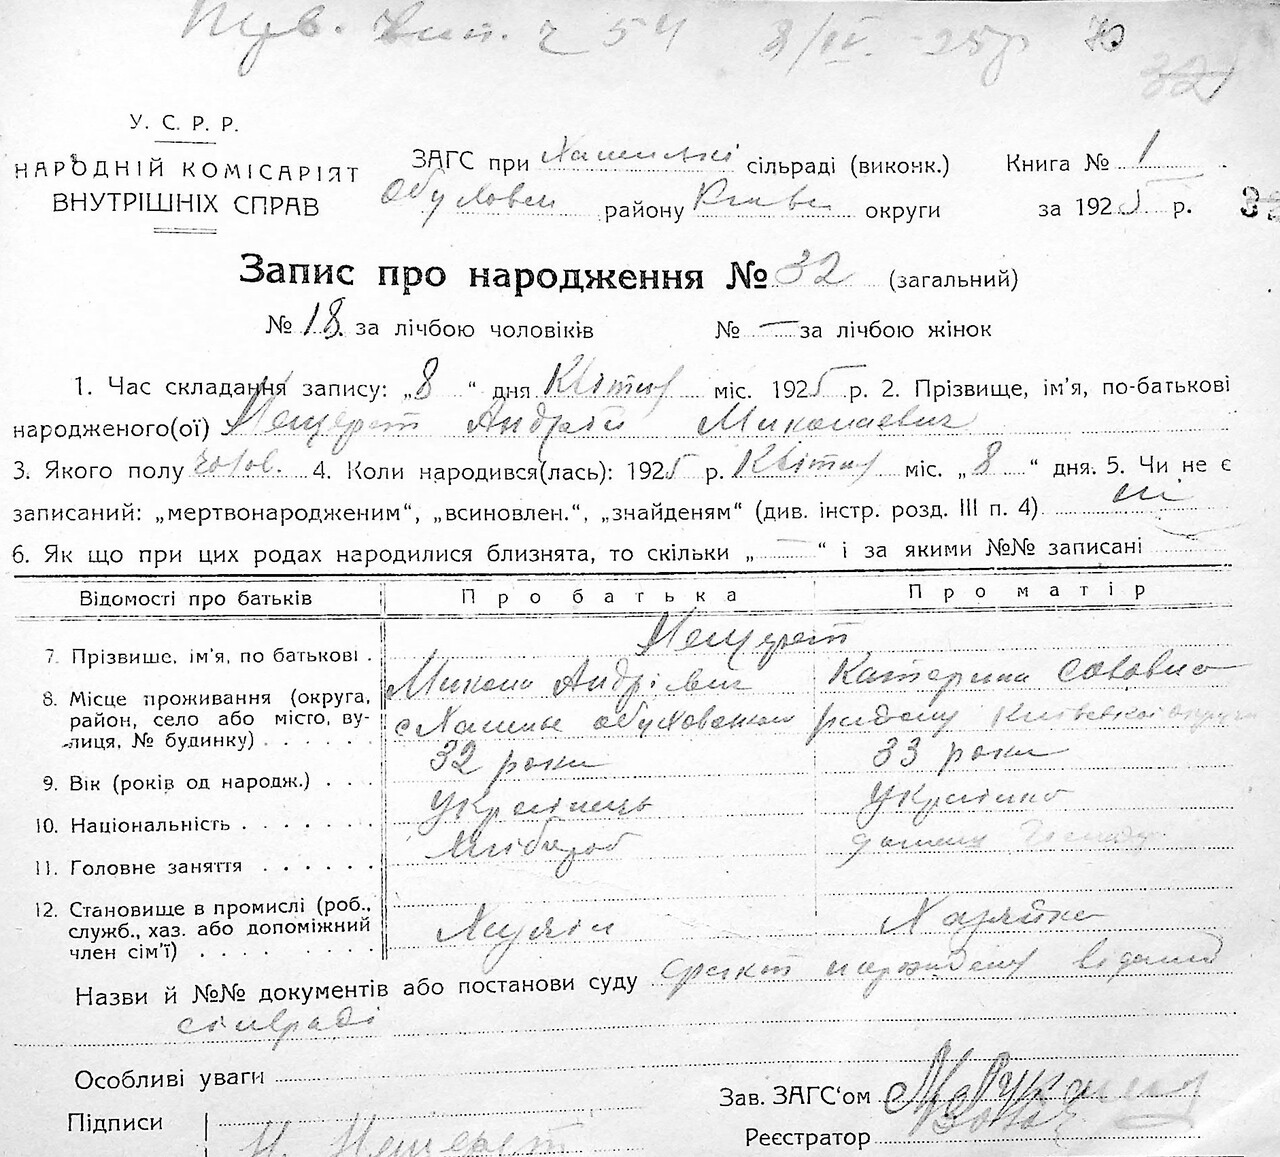 Вип. ч 54 8/IV - 25 р
32
У. С. Р. Р.
НАРОДНІЙ КОМІСАРІЯТ
ВНУТРІШНІХ СПРАВ
ЗАГС при сільраді (виконк.) Книга № 1
району округи за 1925 р.
Запис про народження № 32 (загальний)
№ 18 за лічбою чоловіків № — за лічбою жінок
1. Час складання запису: „8 “ дня Квітня міс. 1925 р. 2. Прізвище, ім'я, по-батькові
народженого(ої) Мещерет Андрій Миколаевич
3. Якого полу чолов. 4. Коли народився(лась): 1925 р. Квітня міс. „8 “ дня. 5. Чи не є
записаний: „мертвонародженим“, „всиновлен.“, „знайденям“ (див. інстр. розд. III п. 4) ні
6. Як що при цих родах народилися близнята, то скільки „ — “ і за якими №№ записані —
Відомості про батьків Про батька Про матір
7. Прізвише, ім'я, по батькові . Мещерет
Микола Андрієвич Катерина Сововна
8. Місце проживання (округа,
район, село або місто, ву-
лиця, № будинку) . . . . . . району Київської округи
9. Вік (років од народж.) . . . 32 роки 33 роки
10. Національність . . . . . . . Українець Українка
11. Головне заняття . . . . . . Хлібороб
12. Становище в промислі (роб.,
служб., хаз. або допоміжний
член сім'ї) . . . . . . . . Хазяїн Хазяйка
Назви й №№ документів або постанови суду
сільраді
Особливі уваги
Зав. ЗАГС'ом
Підписи М. Мещерет
Реєстратор